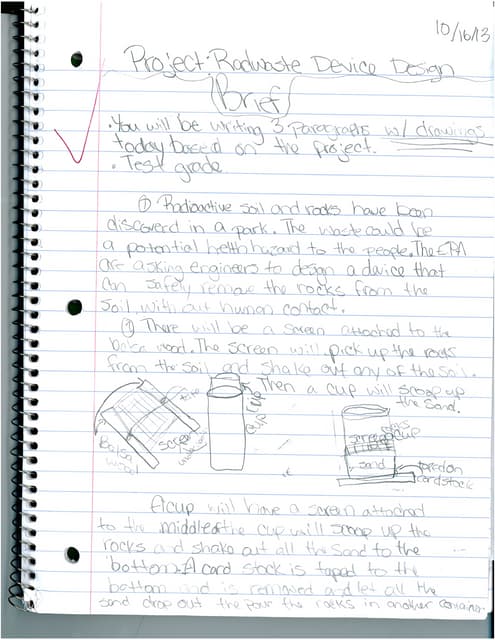 10/16/13
Project: Radwaste Device Design
(Brief)
• You will be writing 3 paragraphs w/ drawings
today based on the project.
• Test grade
① Radioactive soil and rocks have been
discoverd in a park. The waste could be
a potential helth hazard to the people. The EPA
are asking engineers to design a device that
can safely remove the rocks from the
soil with out human contact.
① There will be a screen attached to the
balsa wood. The screen will pick up the rocks
from the soil and shake out any of the soil.
Then a cup will scoop up
the sand.
Balsa
wood
screen
cup
screen
cup
sand
cardstock
A cup will have a screen attached
to the middle of the cup will scoop up the
rocks and shake out all the sand to the
bottom. A card stock is taped to the
bottom and is removed and let all the
sand drop out the pour the rocks in another